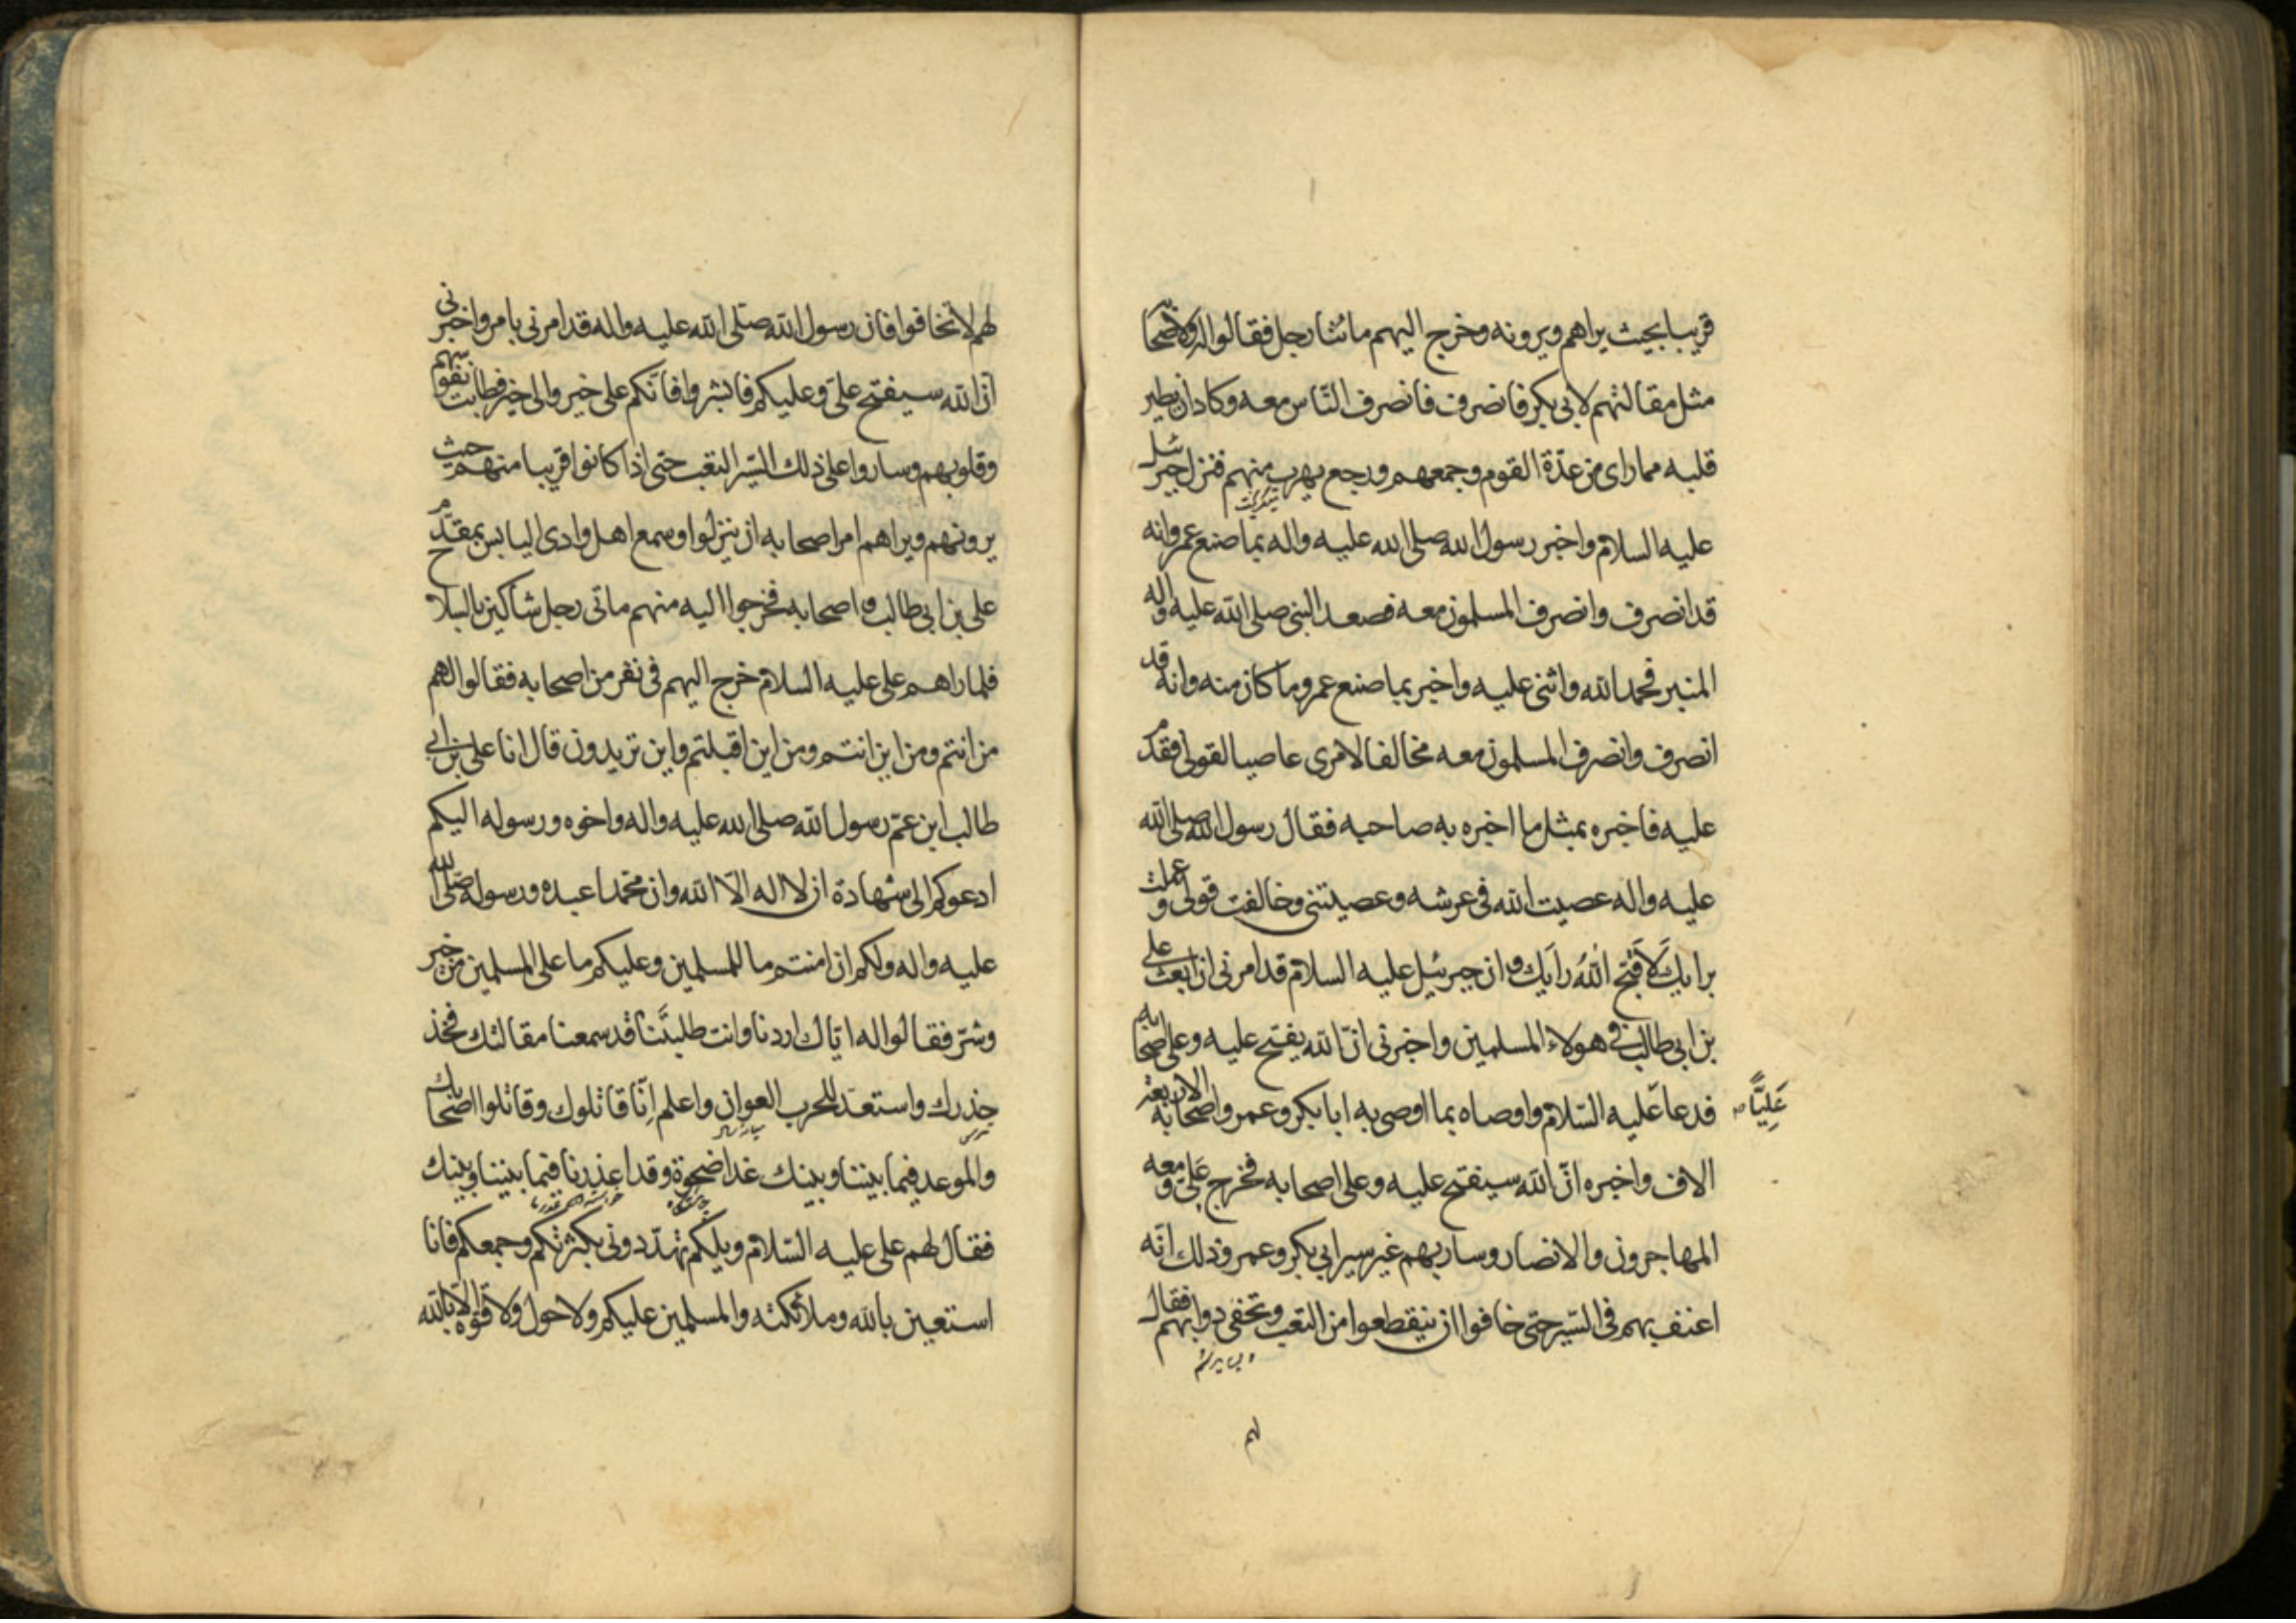 قريبا بحيث يراهم ويرونه وخرج اليهم مائتا رجل فقالوا له ولاصحابه
مثل مقالتهم لابي بكر فانصرف فانصرف الناس معه وكاد ان يطير
قلبه مما راى من عدّة القوم وجمعهم ورجع يهرب منهم فنزل جبرئيل
عليه السلام واخبر رسول الله صلى الله عليه واله بما صنع عمر وانه
قد انصرف وانصرف المسلمون معه فصعد النبى صلى الله عليه واله
المنبر فحمد الله واثنى عليه واخبر بما صنع عمر وما كان منه وانه قد
انصرف وانصرف المسلمون معه مخالفا لامرى عاصيا لقولى فقدم
عليه فاخبره بمثل ما اخبره به صاحبه فقال رسول الله صلى الله
عليه واله عصيت الله فى عرشه وعصيتنى وخالفت قولى وعملت
برايك لَا قَبَّحَ اللهُ رَايك وان جبرئيل عليه السلام قد امرنى ان ابعث على
بن ابى طالب فى هولاء المسلمين واخبرنى انّ الله يفتح عليه وعلى اصحابه
فدعا عليه السّلام واوصاه بما اوصى به ابا بكر وعمر واصحابه الاربعة
عَلِيًّا
الاف واخبره انّ الله سيفتح عليه وعلى اصحابه فخرج عَلِىّ ومعه
المهاجرون والانصار وسار بهم غير سير ابى بكر وعمر وذلك انّه
اعنف بهم فى السّير حتى خافوا ان ينقطعوا من التعب وتحفى دوابهم فقال
لهم
لهم لا تخافوا فان رسول الله صلّى الله عليه واله قد امرنى بامر واخبرنى
انّ الله سيفتح علىّ وعليكم فابشروا فانّكم على خير والى خير فطابت نفوسهم
وقلوبهم وساروا على ذلك السّير التعب حتى اذا كانوا قريبا منهم حيث
يرونهم ويراهم امر اصحابه ان ينزلوا وسمع اهل وادى اليابس بمقدم
على بن ابى طالب واصحابه فخرجوا اليه منهم مأتى رجل شاكين بالسلاح
فلما راهم على عليه السّلام خرج اليهم فى نفر من اصحابه فقالوا لهم
من انتم ومن اين انتم ومن اين اقبلتم واين تريدون قال انا على بن ابى
طالب ابن عمّ رسول الله صلى الله عليه واله واخوه ورسوله اليكم
ادعوكم الى شهادة ان لا اله الّا الله وان محمّدا عبده ورسوله صلّى الله
عليه واله ولكم ان امنتم ما للمسلمين وعليكم ما على المسلمين من خير
وشرّ فقالوا له ايّاك اردنا وانت طلبتنا قد سمعنا مقالتك فخذ
حذرك واستعدّ للحرب العوان واعلم اِنّا قاتلوك وقاتلوا اصحابك
والموعد فيما بيننا وبينك غدا ضحوة وقد اعذرنا فيما بيننا وبينك
فقال لهم على عليه السّلام ويلكم تهدّدونى بكثرتكم وجمعكم فانا
استعين بالله وملائكته والمسلمين عليكم ولا حول ولا قوّة الّا بالله